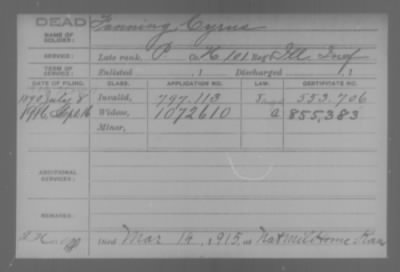 DEAD
Fanning Cyrus
NAME OF SOLDIER:
SERVICE: Late rank, P Co. H, 101 Reg't Ill. Inf
TERM OF SERVICE: Enlisted , 1 Discharged , 1
DATE OF FILING. CLASS. APPLICATION NO. LAW. CERTIFICATE NO.
1890 July 8 Invalid, 797.113 553.706
1916, Sept. 16 Widow, 1072610 a 855,383
Minor,
ADDITIONAL SERVICES:
REMARKS:
Died Mar 14, 1915, at Nat Mil Home Kan